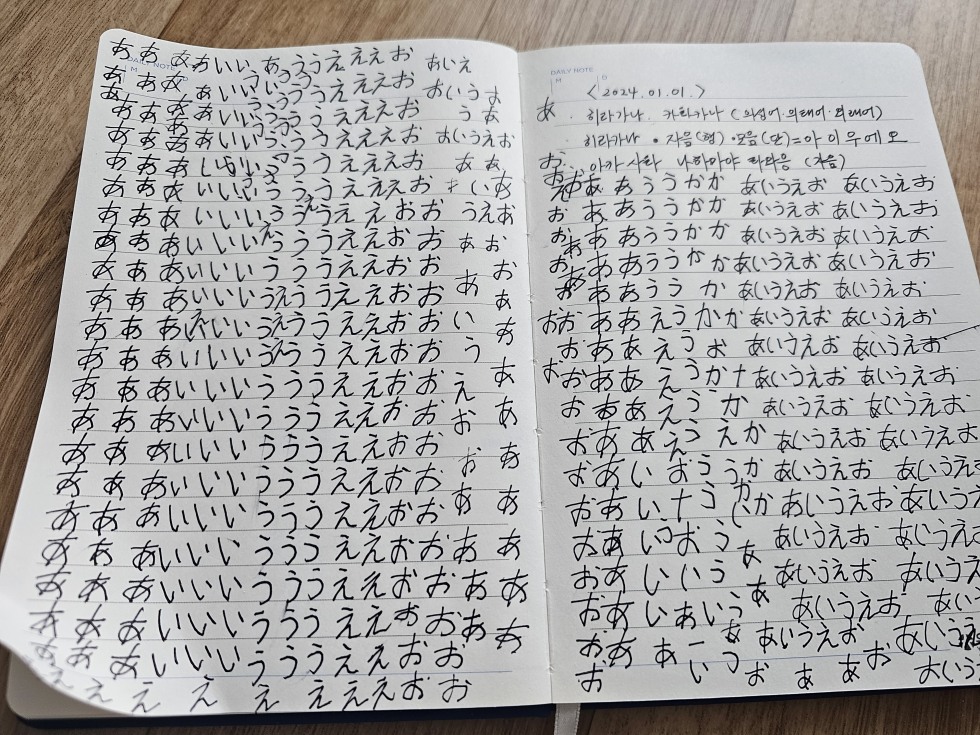 DAILY NOTE
M D
ああああいいあううええええお あいえ
あああ あいいううううええええお おいうお
ああああいいううううええええお うお
ああああいいうううええええお おいうえお
あああいいいうううええええお ああ
あああいいいうううええええお いあ
あああいいいううううええおお うえお
あああいいいうううええおお あお
あああいいいうううええおお お
あああいいいうえううええおお あ あ
あああいいいうえううええおお い あ
あああいいいうううええおお う
あああいいいうううええおお え あ
あああいいいうううええおお お あ
あああいいいうううええおお お あ
あああいいいうううええおお あ
あああいいいうううええおお あ
あああいいいうううええおおああ
あああいいいうううええおおああ
あああいいいうううええおおああ
あああいいいうううええおお
えええええええおお
DAILY NOTE
M D
<2024.01.01.>
あ · 히라가나. 카타카나 (의성어.의태어.외래어)
· 히라가나 • 자음(행) • 모음(단)=아 이 우 에 오
お · 아카사타 나하마야 라와응 (자음)
ああううかか あいうえお あいうえお
お ああううかか あいうえお あいうえお
お ああううかか あいうえお あいうえお
お ああううかか あいうえお あいうえお
ああうう か あいうえお あいうえお
おお ああえうかか あいうえお あいうえお
おああえうお あいうえお あいうえお
おおああえうかナ あいうえお あいうえお
おああえうか あいうえお あいうえお
おああえうえか あいうえお あいうえお
おあいおううか あいうえお あいうえ
おあいナうかいか あいうえお あいうえ
おあいつおうあ あいうえお あいうえ
おあいいうあ あいうえお あいうえ
おあいあいう あいうえお あい
おああーあ あいうえお あいうえ
お いつおああお おいう